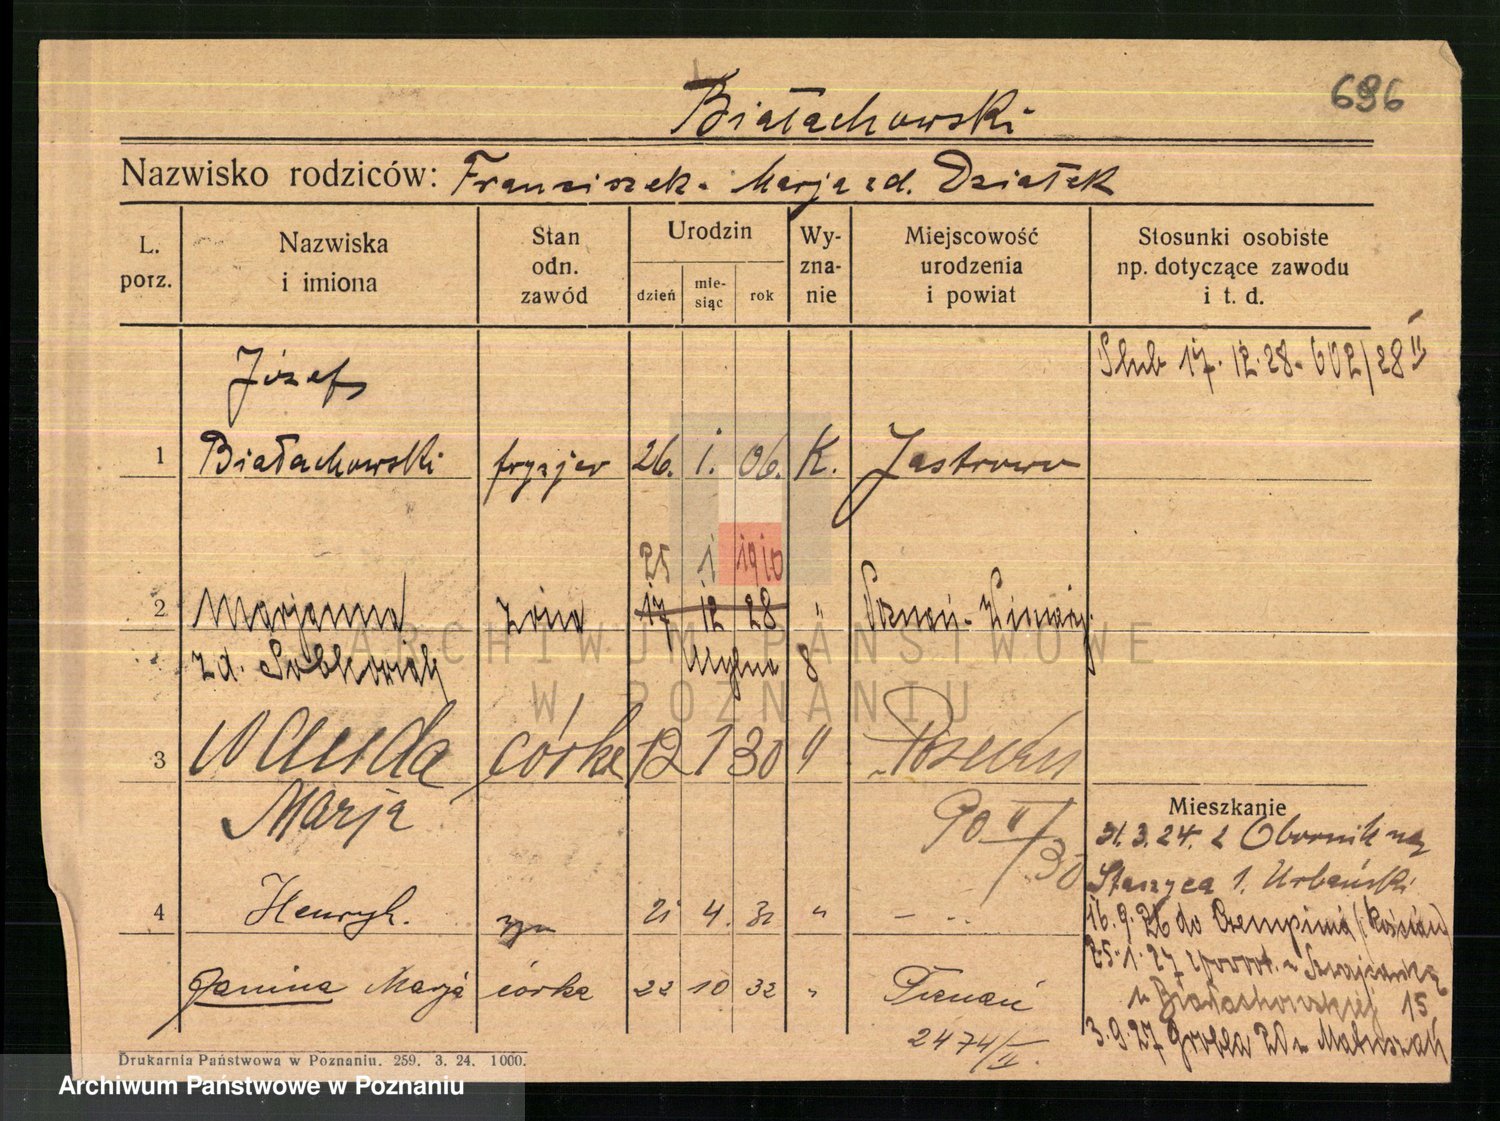 696
Białachowski
Nazwisko rodziców: Franciszek - Marja zd. Działek
L. porz.
Nazwiska i imiona
Stan odn. zawód
Urodzin
dzień
mie- siąc
rok
Wy- zna- nie
Miejscowość urodzenia i powiat
Stosunki osobiste np. dotyczące zawodu i t. d.
Ślub 17. 12. 28 - 602/28 II
Józef
1 Białachowski fryzjer 26. 1. 06. K. Jastrowo
25 1 1910
2 Marjanna żona 17 12 28 " Poznań -
zd. 8
3 Wanda córka 12 1 30 " Poznań
Marja 90 II/30
Mieszkanie
31. 3. 24. z Obornik na
Staszyca 1. Urbański
4 Henryk. syn 21 4. 31 " -
16. 9. 26 do Czempinia (Kościan)
25. 1. 27 z
u Białachowskiej 15
Janina Marja córka 22 10 32 " Poznań
2474/II.
3. 9. 27 Grobla 20 u Matuszak
Drukarnia Państwowa w Poznaniu. 259. 3. 24. 1000.
ARCHIWUM PAŃSTWOWE
W POZNANIU
Archiwum Państwowe w Poznaniu